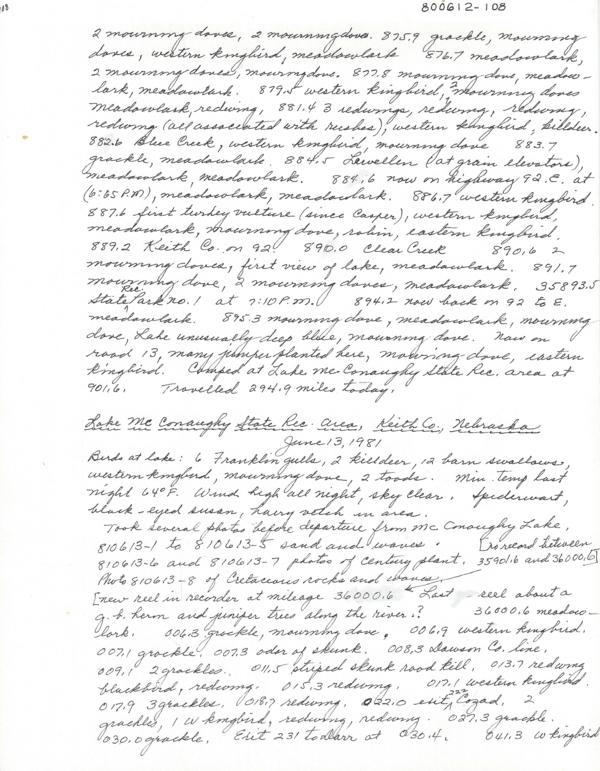 800612-108
2 mourning doves, 2 mourning doves. 875.9 grackle, mourning
doves, western kingbird, meadowlark 876.7 meadowlark,
2 mourning doves, mourning dove. 877.8 mourning dove, meadow-
lark, meadowlark. 879.5 western kingbird, 2 mourning doves
meadowlark, redwing, 881.4 3 redwings, redwing, redwing,
redwing (all associated with rushes), western kingbird, killdeer.
882.6 Blue Creek, western kingbird, mourning dove 883.7
grackle, meadowlark. 884.5 Lewellen (at grain elevators),
meadowlark, meadowlark. 884.6 now on highway 92 E. at
(6:55 P.M), meadowlark, meadowlark. 886.7 western kingbird.
887.6 first turkey vulture (since Casper), western kingbird,
meadowlark, mourning dove, robin, eastern kingbird.
889.2 Keith Co. on 92. 890.0 Clear Creek 890.6 2
mourning doves, first view of lake, meadowlark. 891.7
mourning dove, 2 mourning doves, meadowlark. 35893.5
State Rec. Park no. 1 at 7:10 P.M. 894.2 now back on 92 to E.
meadowlark. 895.3 mourning dove, meadowlark, mourning
dove, Lake unusually deep blue, mourning dove. Now on
road 13, many juniper planted here, mourning dove, eastern
kingbird. Camped at Lake McConaughy State Rec. area at
901.6. Travelled 294.9 miles today.
Lake Mc Conaughy State Rec. Area, Keith Co., Nebraska
June 13, 1981
Birds at lake: 6 Franklin gulls, 2 killdeer, 12 barn swallows,
western kingbird, mourning dove, 2 toads. Min. temp last
night 64°F. Wind high all night, sky clear. Spiderwort,
black-eyed susan, hairy vetch in area.
Took several photos before departure from Mc Conaughy Lake,
810613-1 to 810613-5 sand and waves. [no record between
810613-6 and 810613-7 photos of century plant. 35901.6 and 36000.6]
Photo 810613-8 of Cretaceous rocks and waves.
[new reel in recorder at mileage 36000.6 Last reel about a
g. b. heron and juniper tries along the river.? 36000.6 meadow-
lark. 006.3 grackle, mourning dove. 006.9 western kingbird.
007.1 grackle. 007.3 odor of skunk. 008.3 Dawson Co. line,
009.1 2 grackles. 011.5 striped skunk road kill, 013.7 redwing
blackbird, redwing. 015.3 redwing. 017.1 western kingbird.
017.9 3 grackles. 018.7 redwing. 022.0 exit 222 Cozad, 2
grackles, 1 w kingbird, redwing, redwing. 027.3 grackle.
030.0 grackle. Exit 231 to Darr at 030.4. 041.3 w kingbird